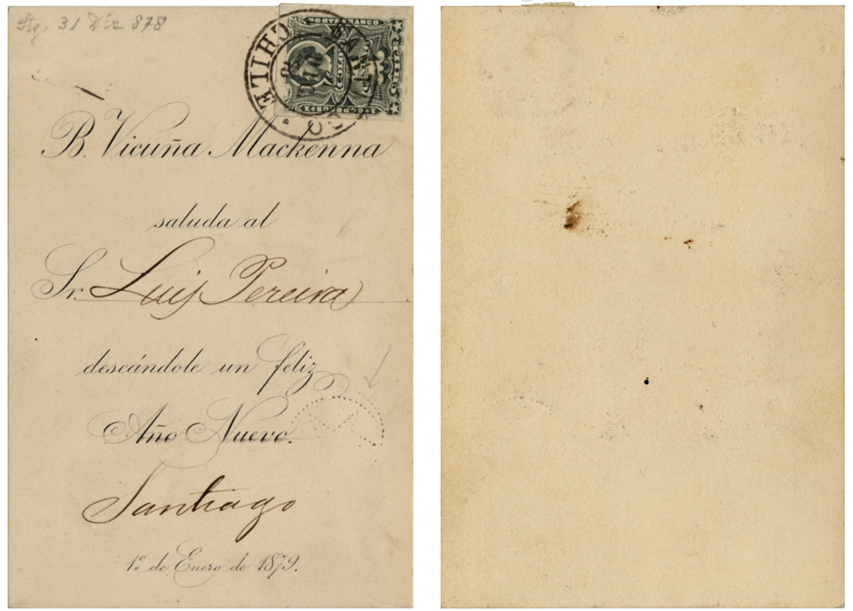 31 Dic 878
CHILE
PORTE FRANCO
B. Vicuña Mackenna
saluda al
Sr. Luis Pereira
deseándole un feliz
Año Nuevo.
Santiago
1º de Enero de 1879.